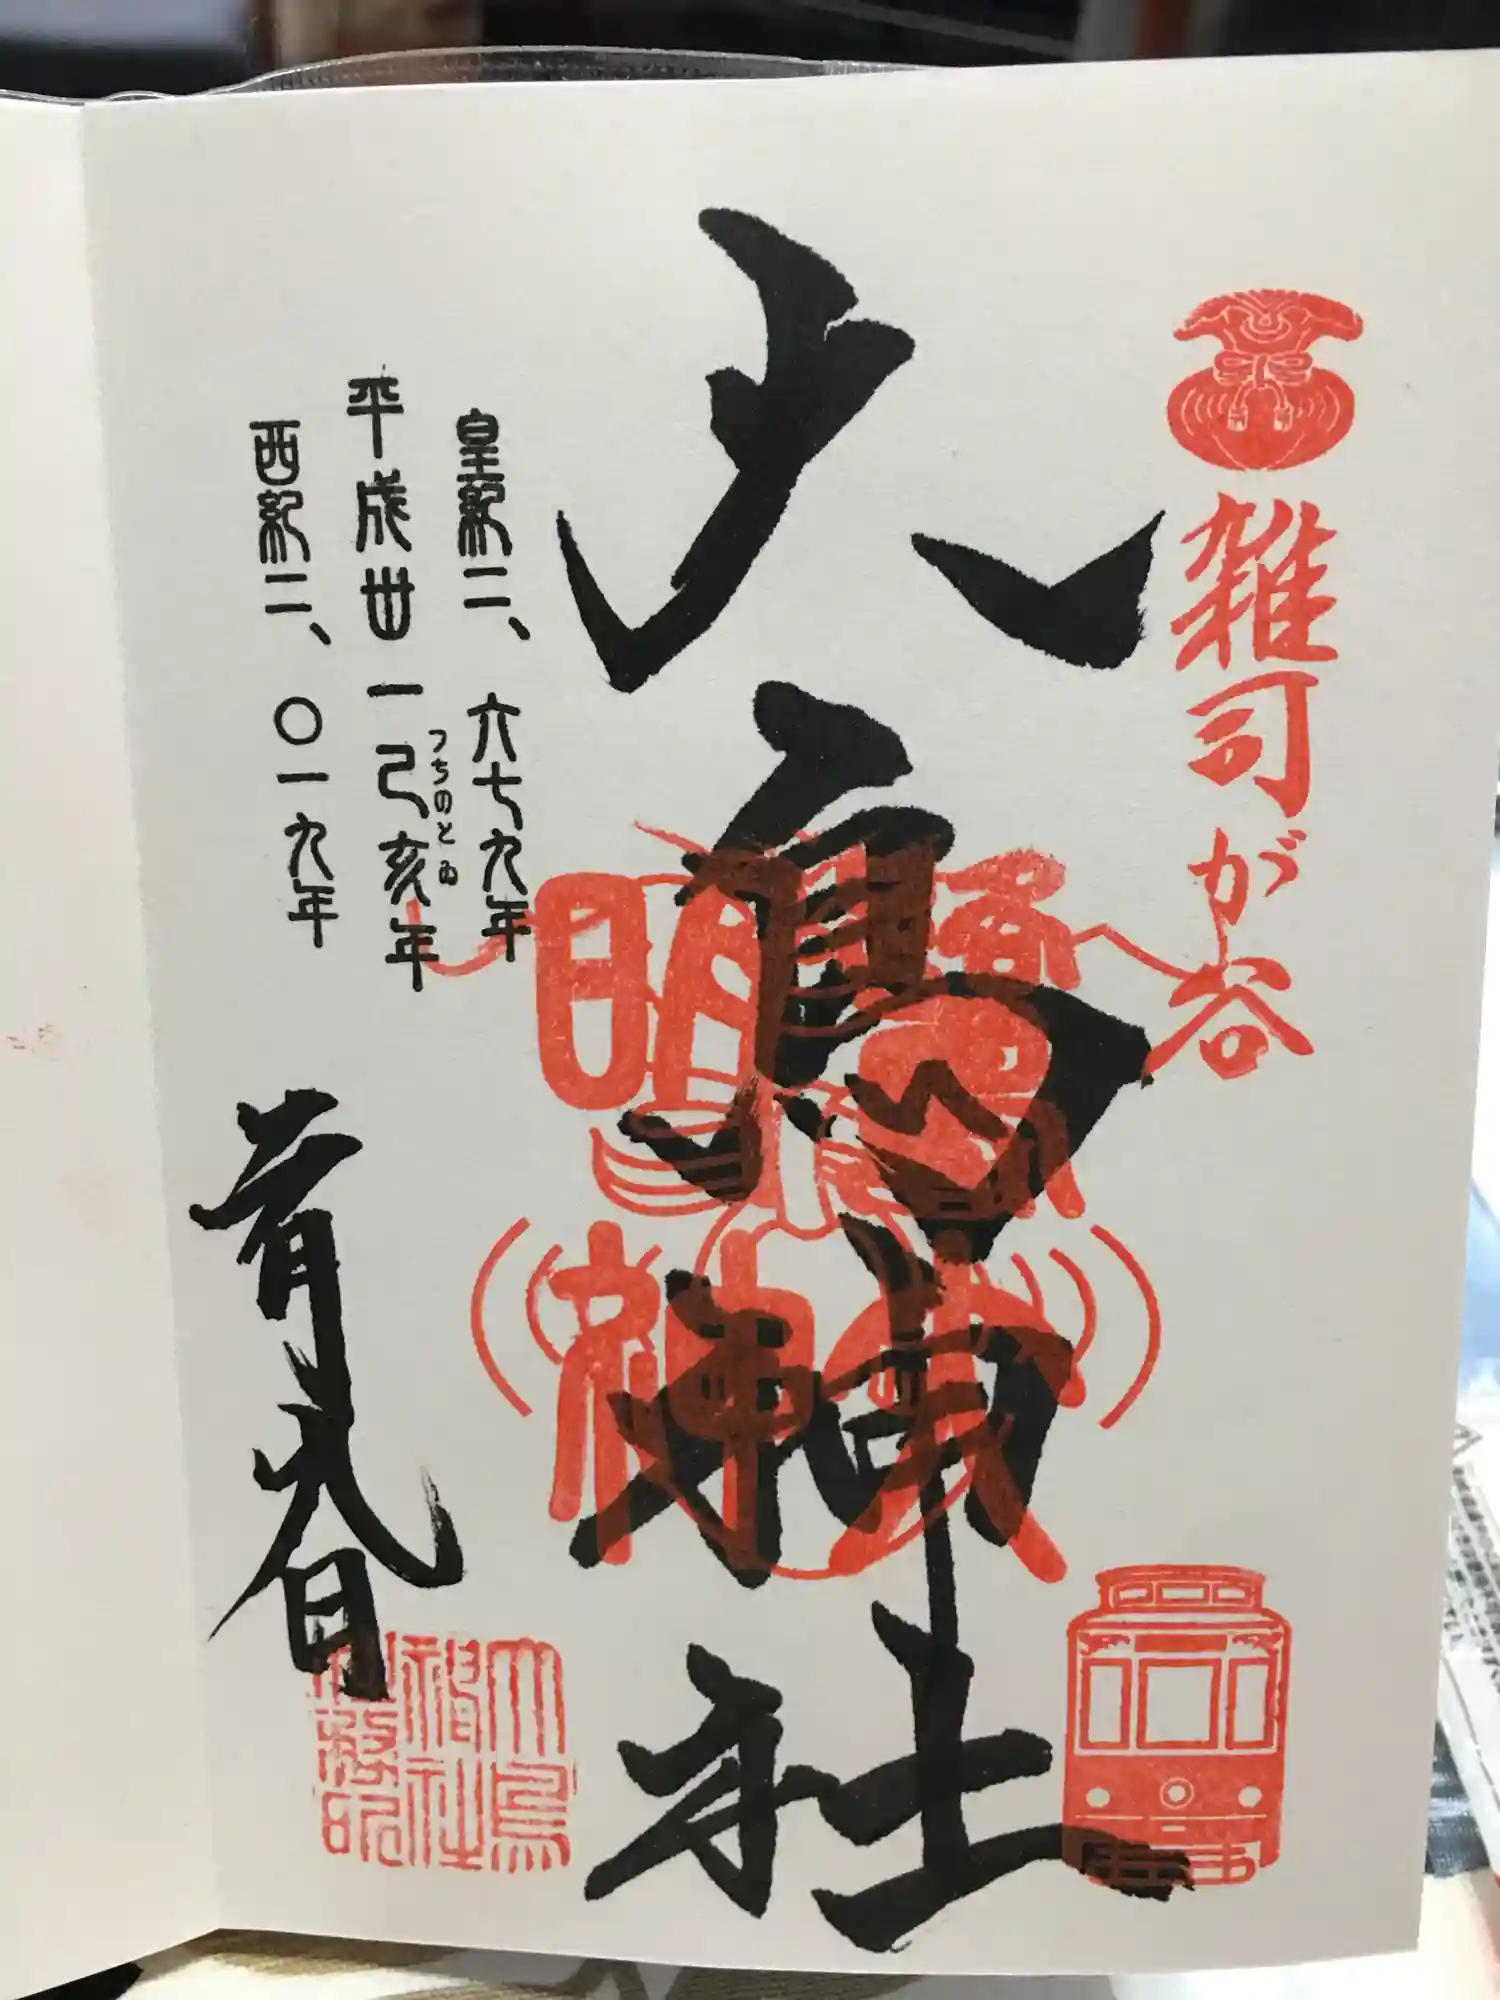 雑司が谷
大鳥神社
鷺大
明神
皇紀二、六七九年
つちのとゐ
平成丗一己亥年
西紀二、〇一九年
月八日
大鳥
神社